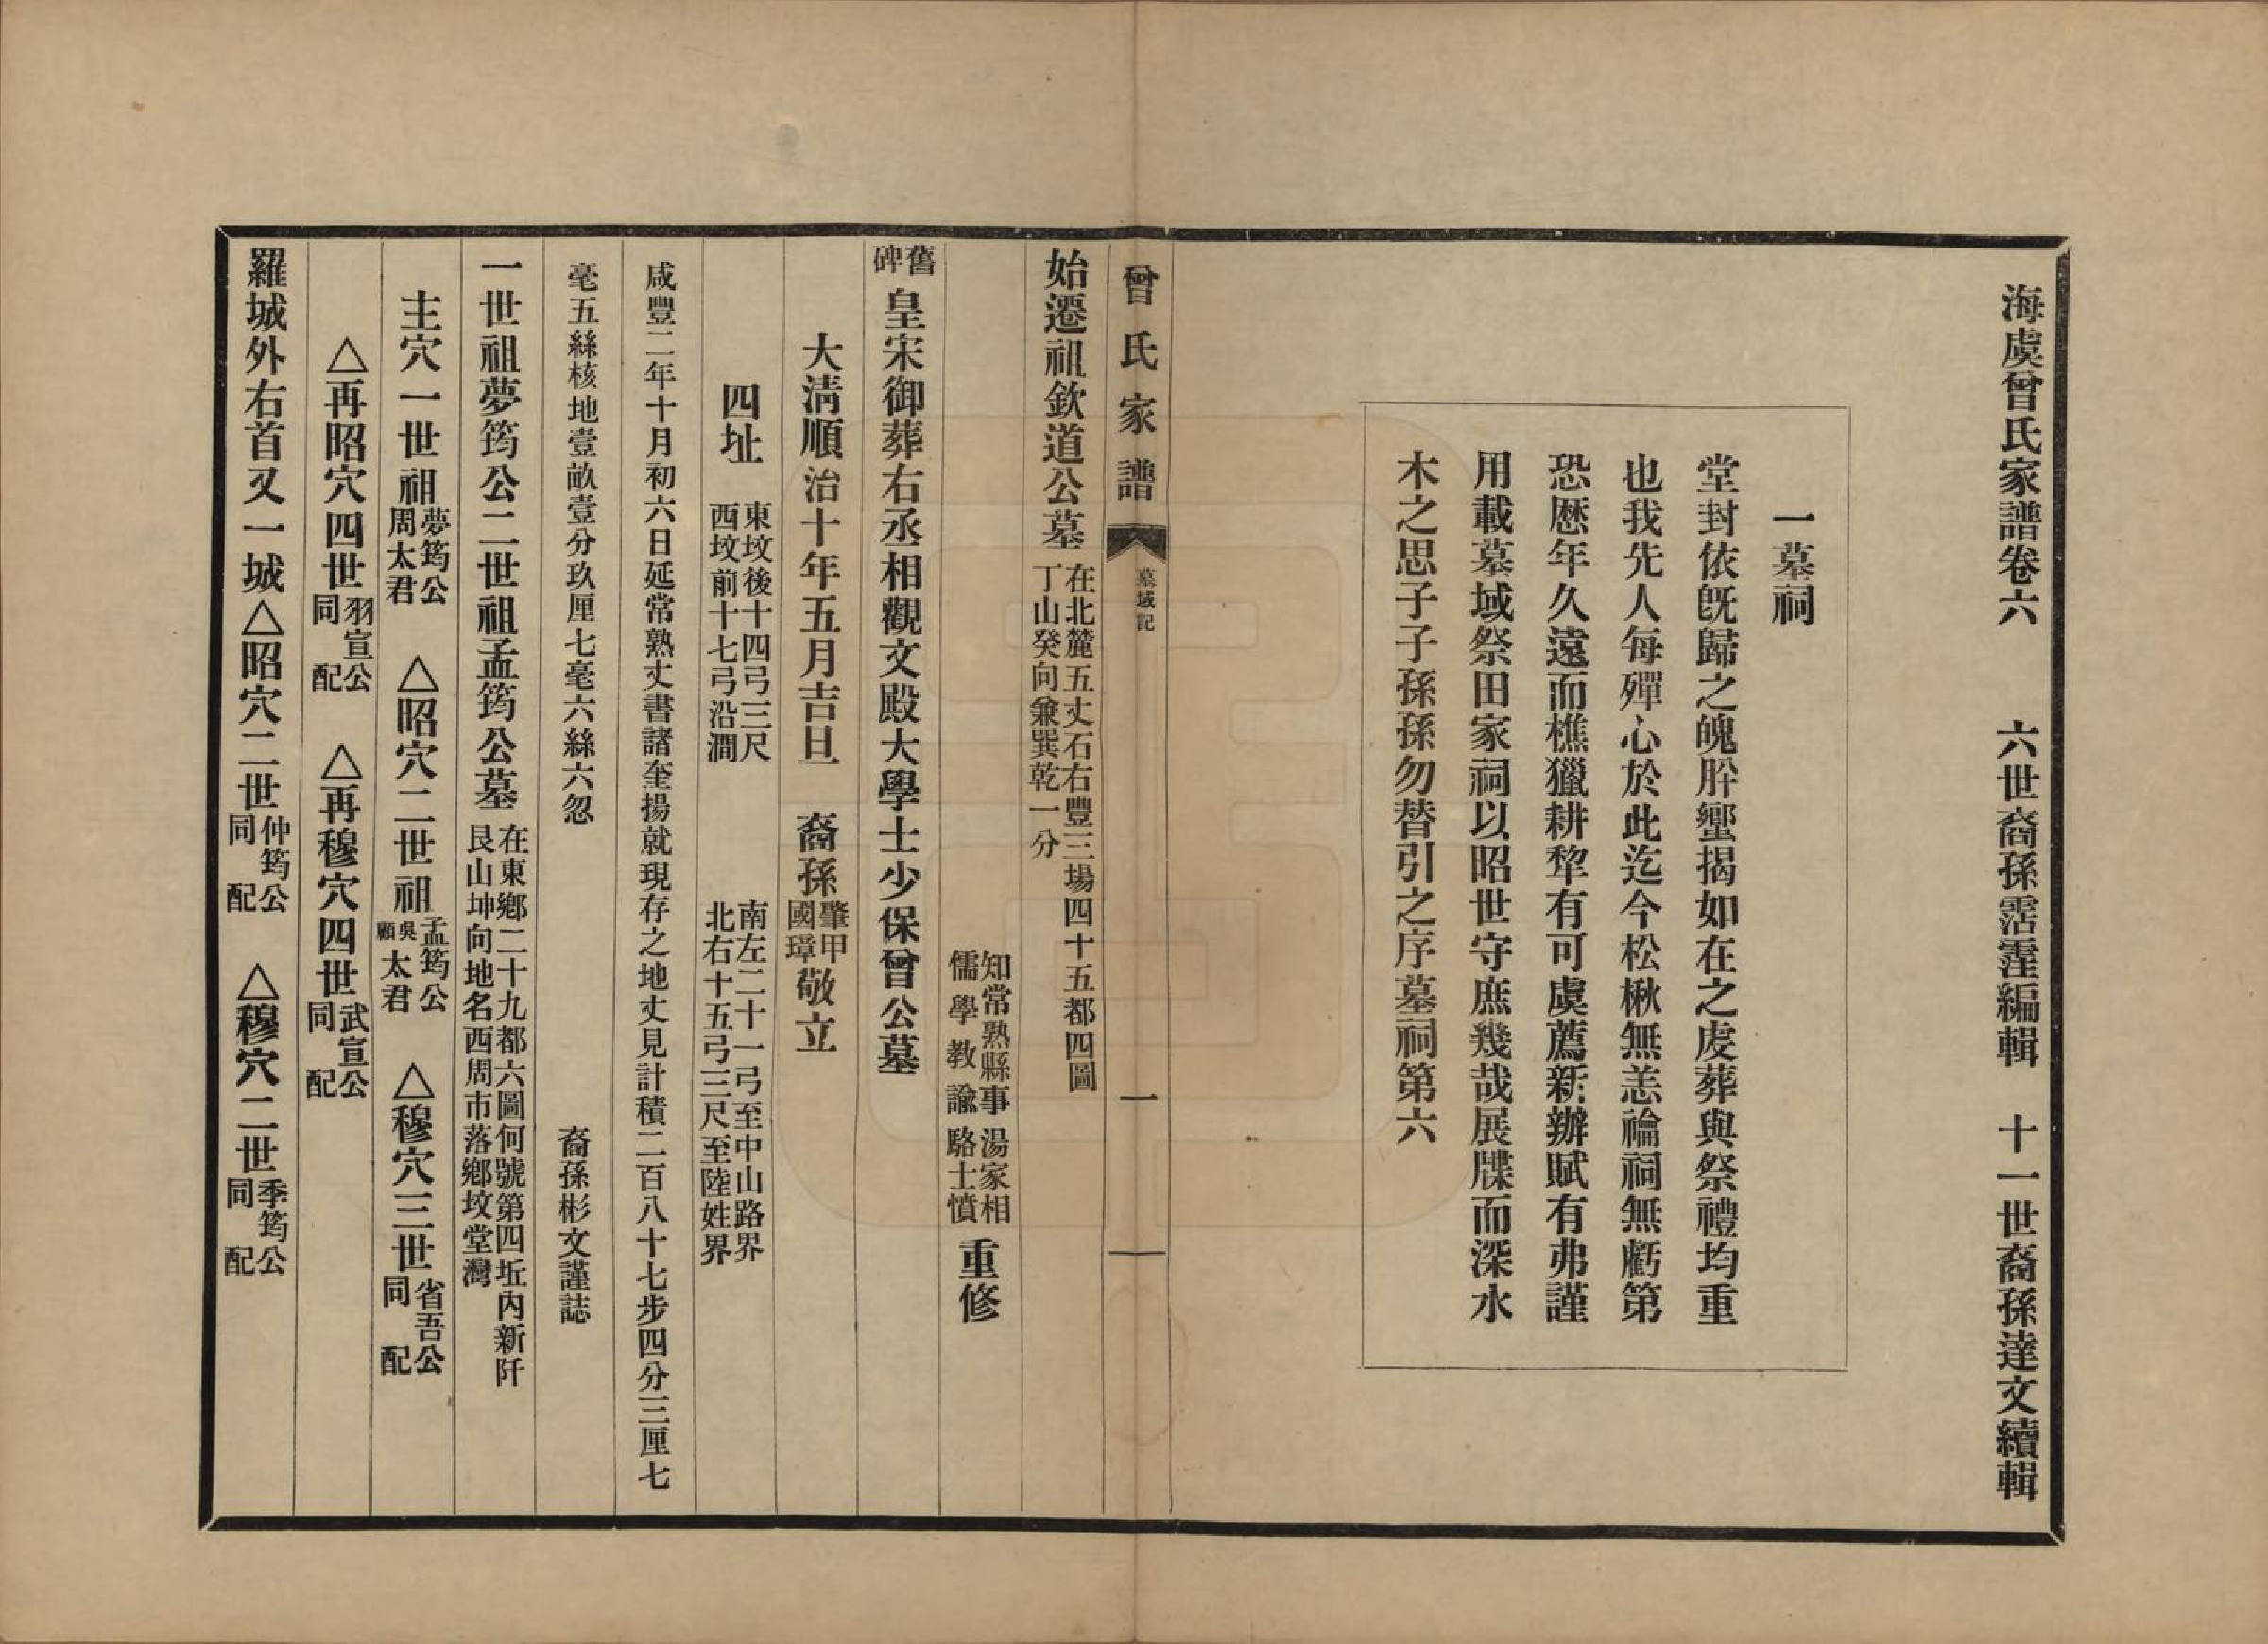 海虞曾氏家譜卷六　六世裔孫霑霔編輯　十一世裔孫達文續輯
一墓祠
堂封依旣歸之魄肸蠁揭如在之虔葬與祭禮均重
也我先人每殫心於此迄今松楸無恙禴祠無虧第
恐歷年久遠而樵獵耕犂有可虞薦新辦賦有弗謹
用載墓域祭田家祠以昭世守庶幾哉展牒而深水
木之思子子孫孫勿替引之序墓祠第六
曾氏家譜　墓域記　一
始遷祖欽道公墓
在北麓五丈石右豐三場四十五都四圖
丁山癸向兼巽乾一分
知常熟縣事湯家相
儒學教諭駱士憤
重修
舊碑
皇宋御葬右丞相觀文殿大學士少保曾公墓
大淸順治十年五月吉旦　裔孫肇甲國璋敬立
四址
東坟後十四弓三尺
西坟前十七弓沿澗
南左二十一弓至中山路界
北右十五弓三尺至陸姓界
咸豐二年十月初六日延常熟丈書諸奎揚就現存之地丈見計積二百八十七步四分三厘七
毫五絲核地壹畝壹分玖厘七毫六絲六忽　裔孫彬文謹誌
一世祖夢筠公二世祖孟筠公墓
在東鄉二十九都六圖何號第四坵內新阡
艮山坤向地名西周市落鄉坟堂灣
主穴一世祖夢筠公周太君　△昭穴二世祖孟筠公吳顧太君　△穆穴三世省吾公同配
△再昭穴四世羽宣公同配　△再穆穴四世武宣公同配
羅城外右首又一城△昭穴二世仲筠公同配　△穆穴二世季筠公同配